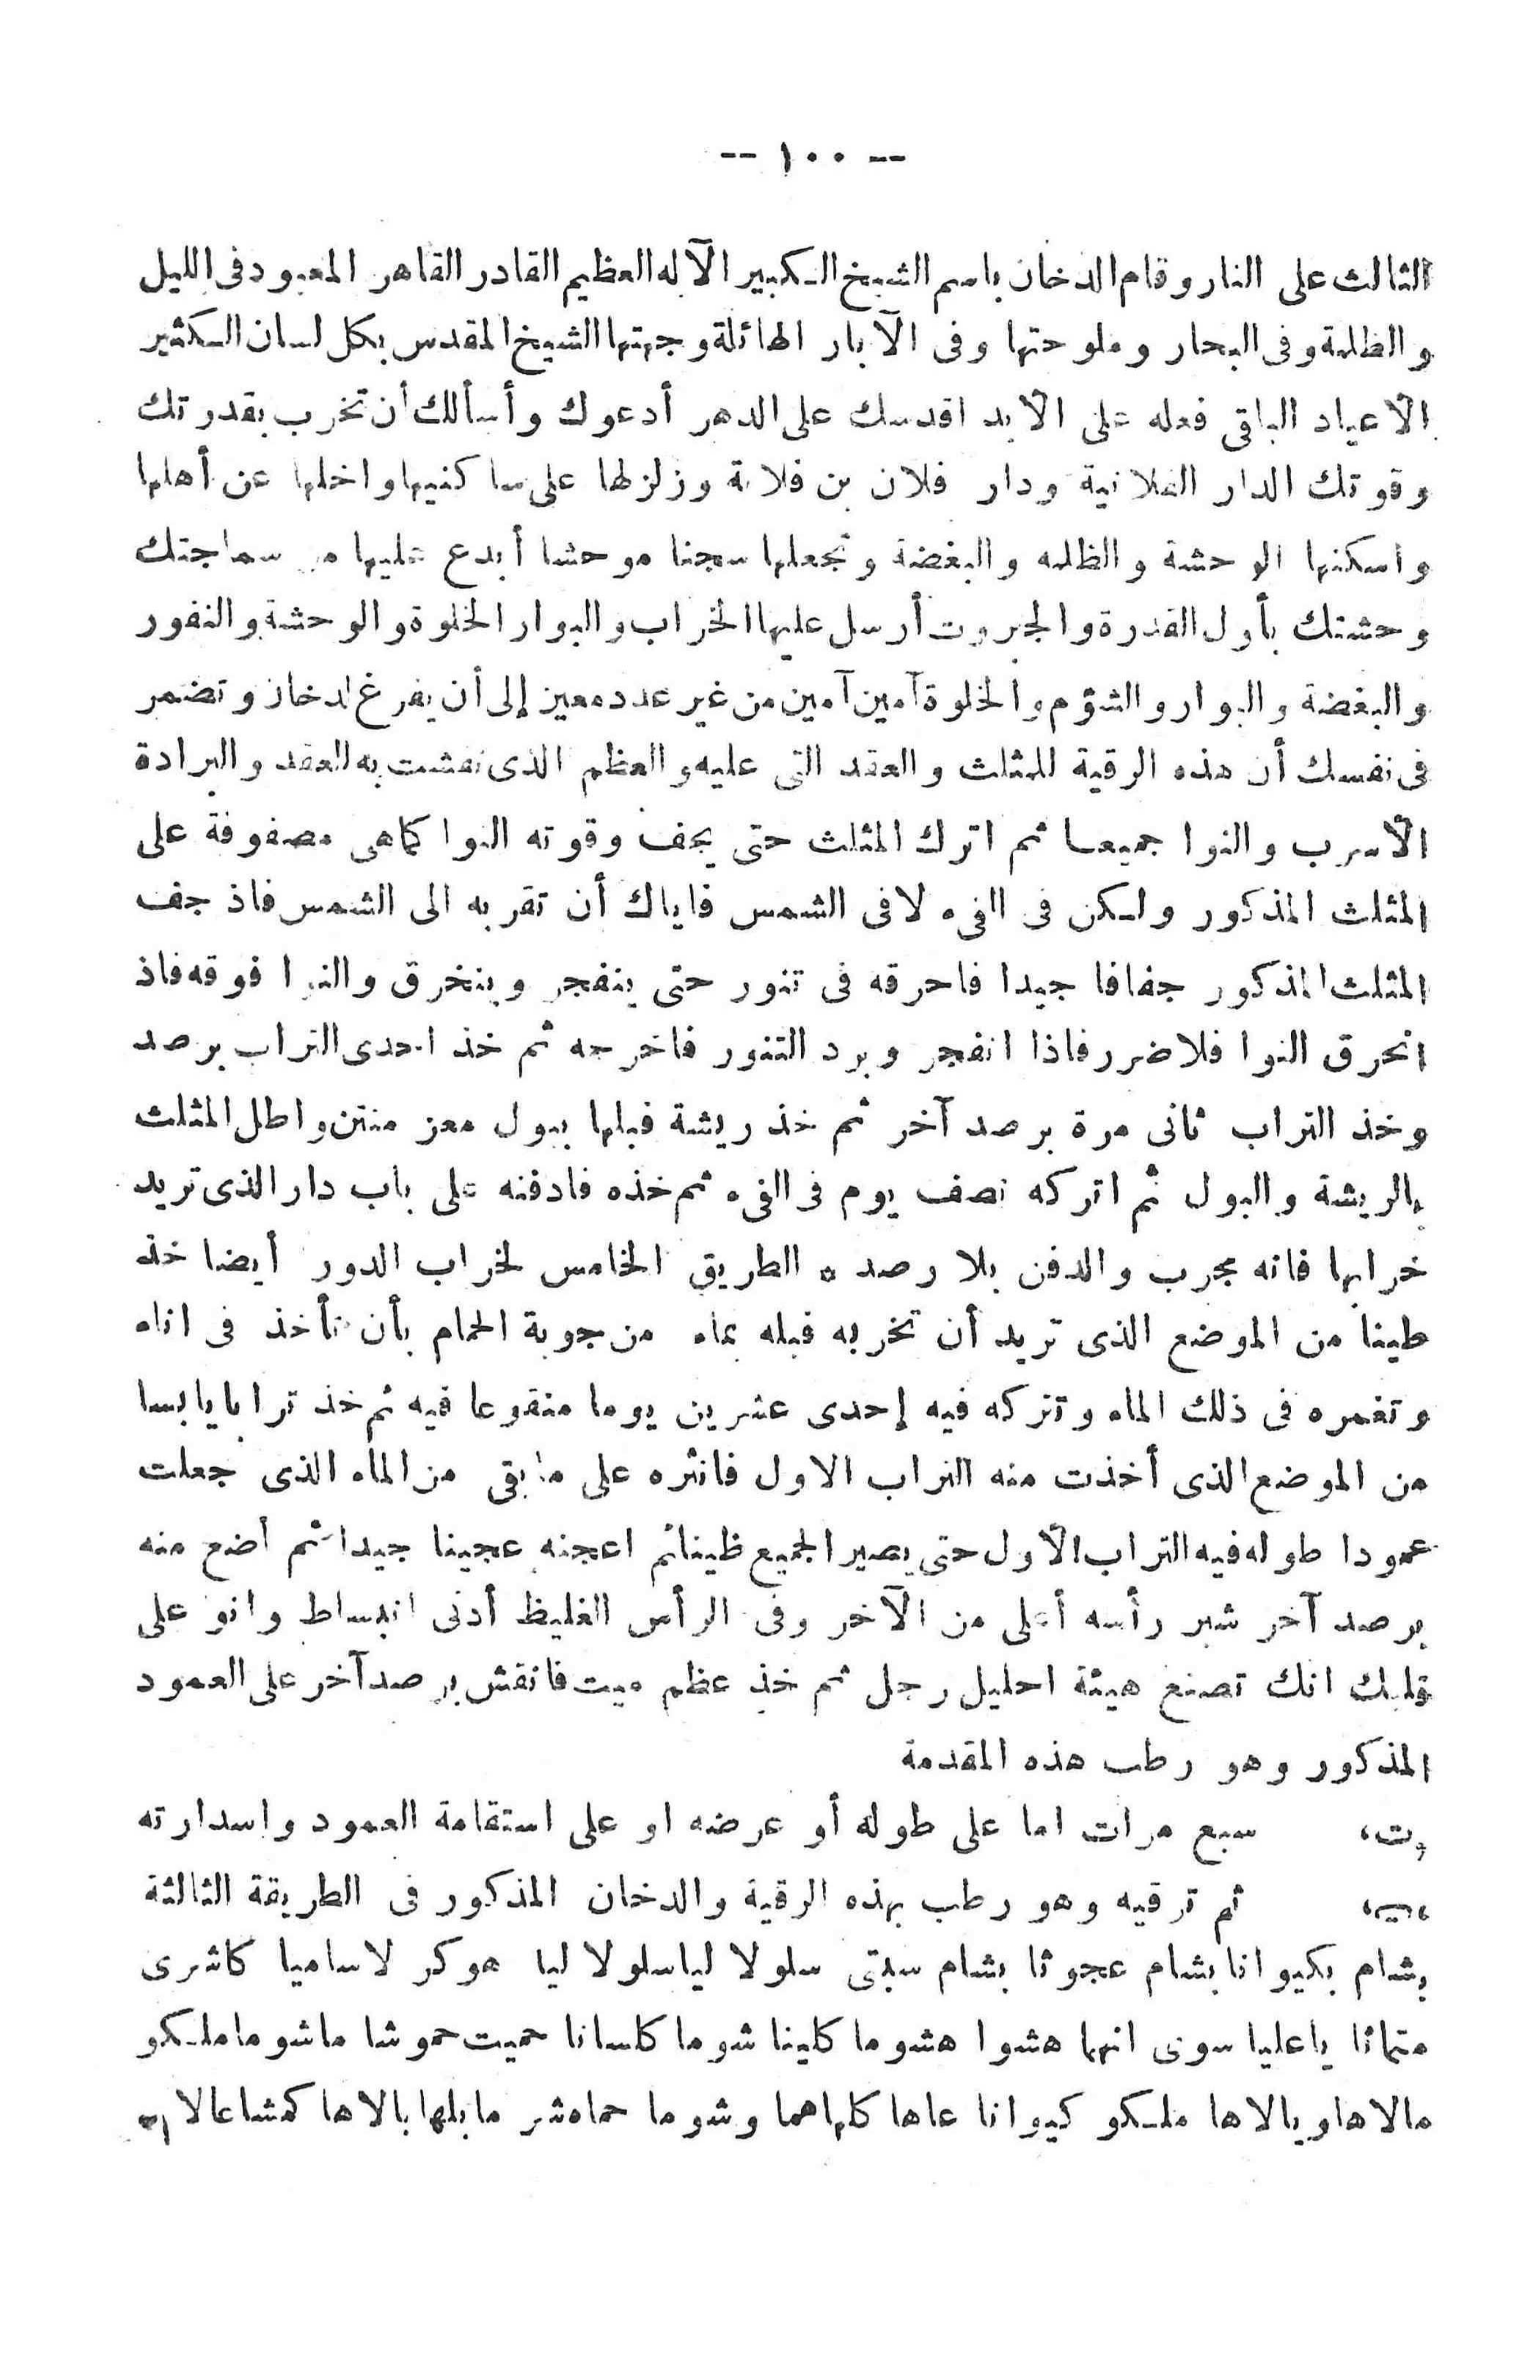 -- ١٠٠ --
الثالث على النار وقام الدخان باسم الشيخ الكبير الآله العظيم القادر القاهر المعبود فى الليل
والظلمة وفى البحار وملوحتها وفى الآبار الهائلة وجهتها الشيخ المقدس بكل لسان الكثير
الأعياد الباقى فعله على الأبد اقدسك على الدهر أدعوك وأسألك أن تخرب بقدرتك
وقوتك الدار الفلانية ودار فلان بن فلانة وزلزلها على ساكنيها واخلها عن أهلها
واسكنها الوحشة والظلمه والبغضة وتجعلها سجنا موحشا أبدع عليها من سماجتك
وحشتك بأول القدرة والجبروت أرسل عليها الخراب والبوار الخلوة والوحشة والنفور
والبغضة والبوار والشؤم والخلوة آمين آمين من غير عدد معين إلى أن يفرغ الدخان وتضمر
فى نفسك أن هذه الرقية للمثلث والعقد التى عليه والعظم الذى نقشت به العقد والبرادة
الأسرب والنوا جميعا ثم اترك المثلث حتى يجف وقوته النوا كما هى مصفوفة على
المثلث المذكور ولكن فى الفىء لا فى الشمس فاياك أن تقربه الى الشمس فاذ جف
المثلث المذكور جفافا جيدا فاحرقه فى تنور حتى ينفجر وينخرق والنوا فوقه فاذ
انحرق النوا فلا ضرر فاذا انفجر وبرد التنور فاخرجه ثم خذ احدى التراب برصد
وخذ التراب ثانى مرة برصد آخر ثم خذ ريشة فبلها ببول معز منتن واطل المثلث
بالريشة والبول ثم اتركه نصف يوم فى الفىء ثم خذه فادفنه على باب دار الذى تريد
خرابها فانه مجرب والدفن بلا رصد ه الطريق الخامس لخراب الدور أيضا خذ
طينا من الموضع الذى تريد أن تخربه فبله بماء من جوبة الحمام بأن تأخذ فى اناء
وتغمره فى ذلك الماء وتتركه فيه إحدى عشرين يوما منقوعا فيه ثم خذ ترابا يابسا
من الموضع الذى أخذت منه التراب الاول فانثره على ما بقى من الماء الذى جعلت
عمودا طوله فيه التراب الأول حتى يصير الجميع ظينا ثم اعجنه عجينا جيدا ثم أضع منه
برصد آخر شبر رأسه أعلى من الآخر وفى الرأس الغليظ أدنى انبساط وانو على
قلبك انك تصنع هيئة احليل رجل ثم خذ عظم ميت فانقش برصد آخر على العمود
المذكور وهو رطب هذه المقدمة
سبع مرات اما على طوله أو عرضه او على استقامة العمود واسدارته
ثم ترقيه وهو رطب بهذه الرقية والدخان المذكور فى الطريقة الثالثة
بشام بكيوانا بشام عجوثا بشام سبتى سلولا لياسلولا ليا هوكر لاساميا كاشرى
متماثا ياعليا سونى انهما هشوا هشوما كلينا شوما كلسانا حميت حموشا ماشوما ملكو
مالاها وبالاها ملكو كيوانا عاها كلماهما وشوما حماه شر ما بلها بالاها كمشاعالا